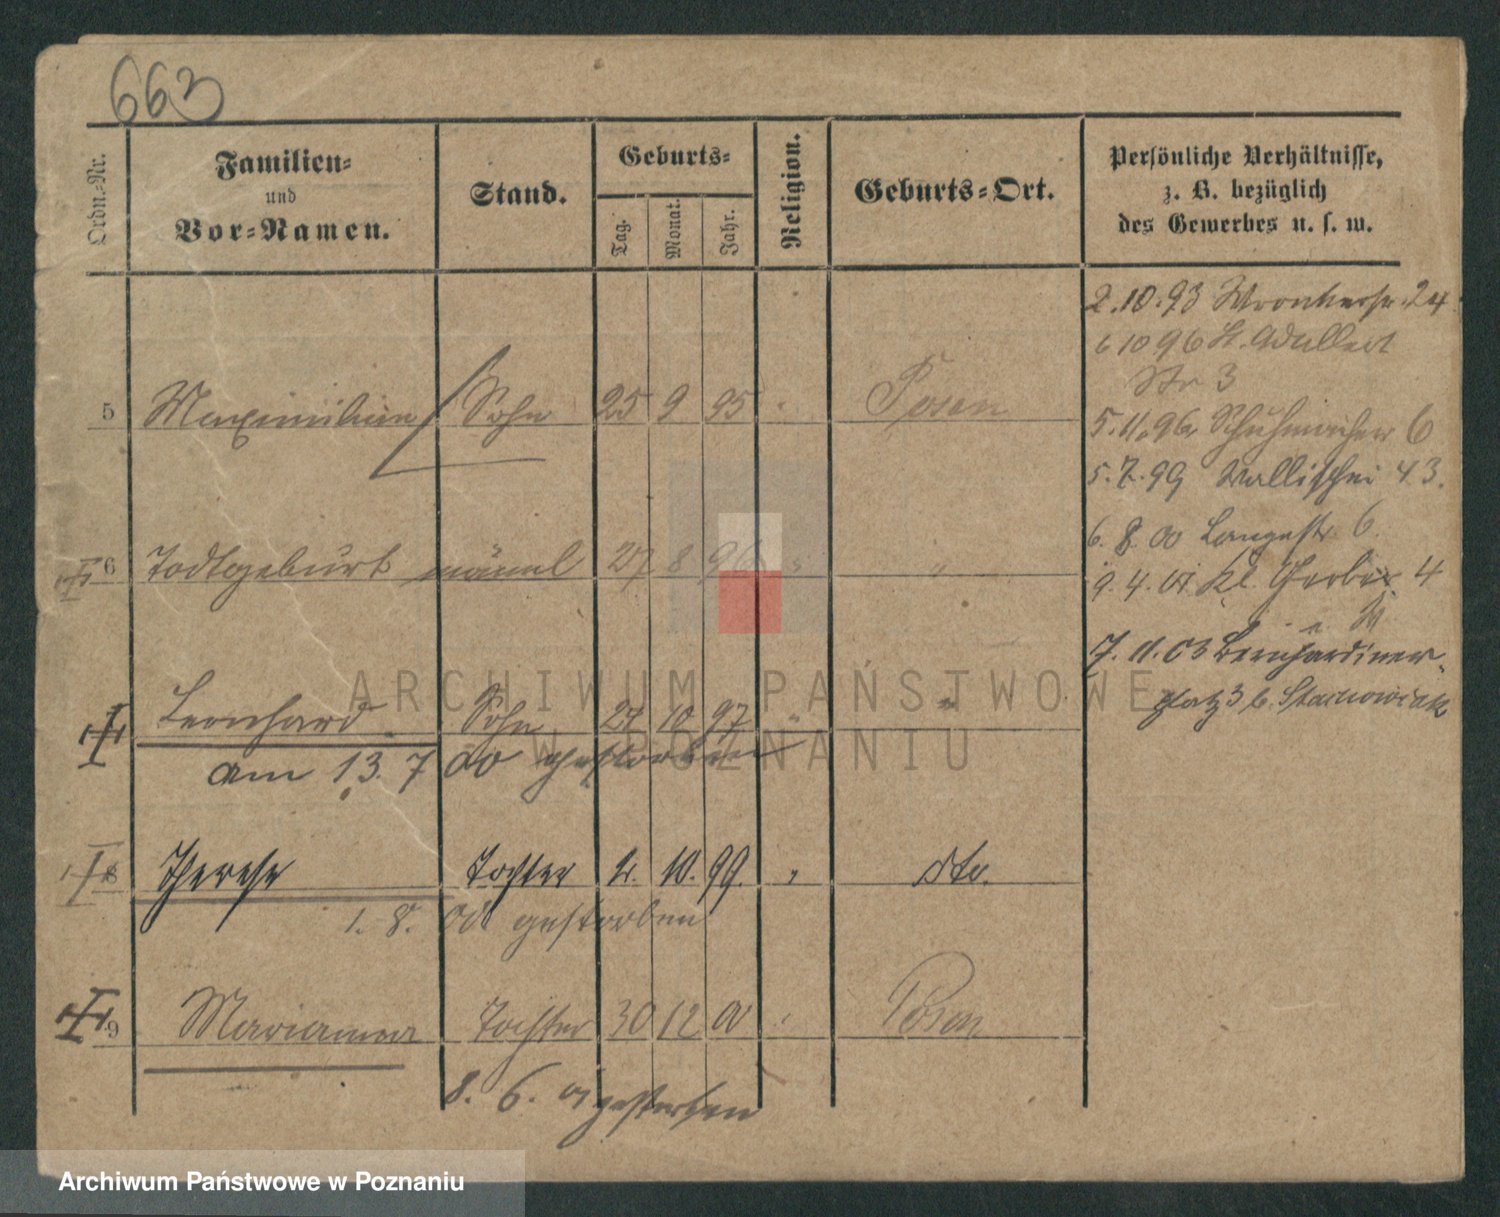 663
Ordn.-Nr.
Familien-
und
Vor-Namen.
Stand.
Geburts-
Tag.
Monat.
Jahr.
Religion.
Geburts-Ort.
Persönliche Verhältnisse,
z. B. bezüglich
des Gewerbes u. s. w.
2.10.93 Wronkerstr. 24
6 10 96 St. Adalbert
Str 3
5 Maximilian Sohn 25 9 95 " Posen
5.11.96 Schuhmacher 6
5.7.99 Wallischei 43.
6. 8. 00 Langestr. 6.
6 Todtgeburt männl 27 8 96 " "
9. 4. 01 Kl. Gerber 4
7. 11. 03 Bernhardiner-
platz 3 b. Stanowiak
Bernhard Sohn 27 10 97 " "
am 13. 7 00 gestorben
8 Therese Tochter 2. 10. 99. " dto.
1. 8. 00 gestorben
9 Marianna Tochter 30 12 00 " Posen
8. 6. 01 gestorben
ARCHIWUM PAŃSTWOWE
W POZNANIU
Archiwum Państwowe w Poznaniu